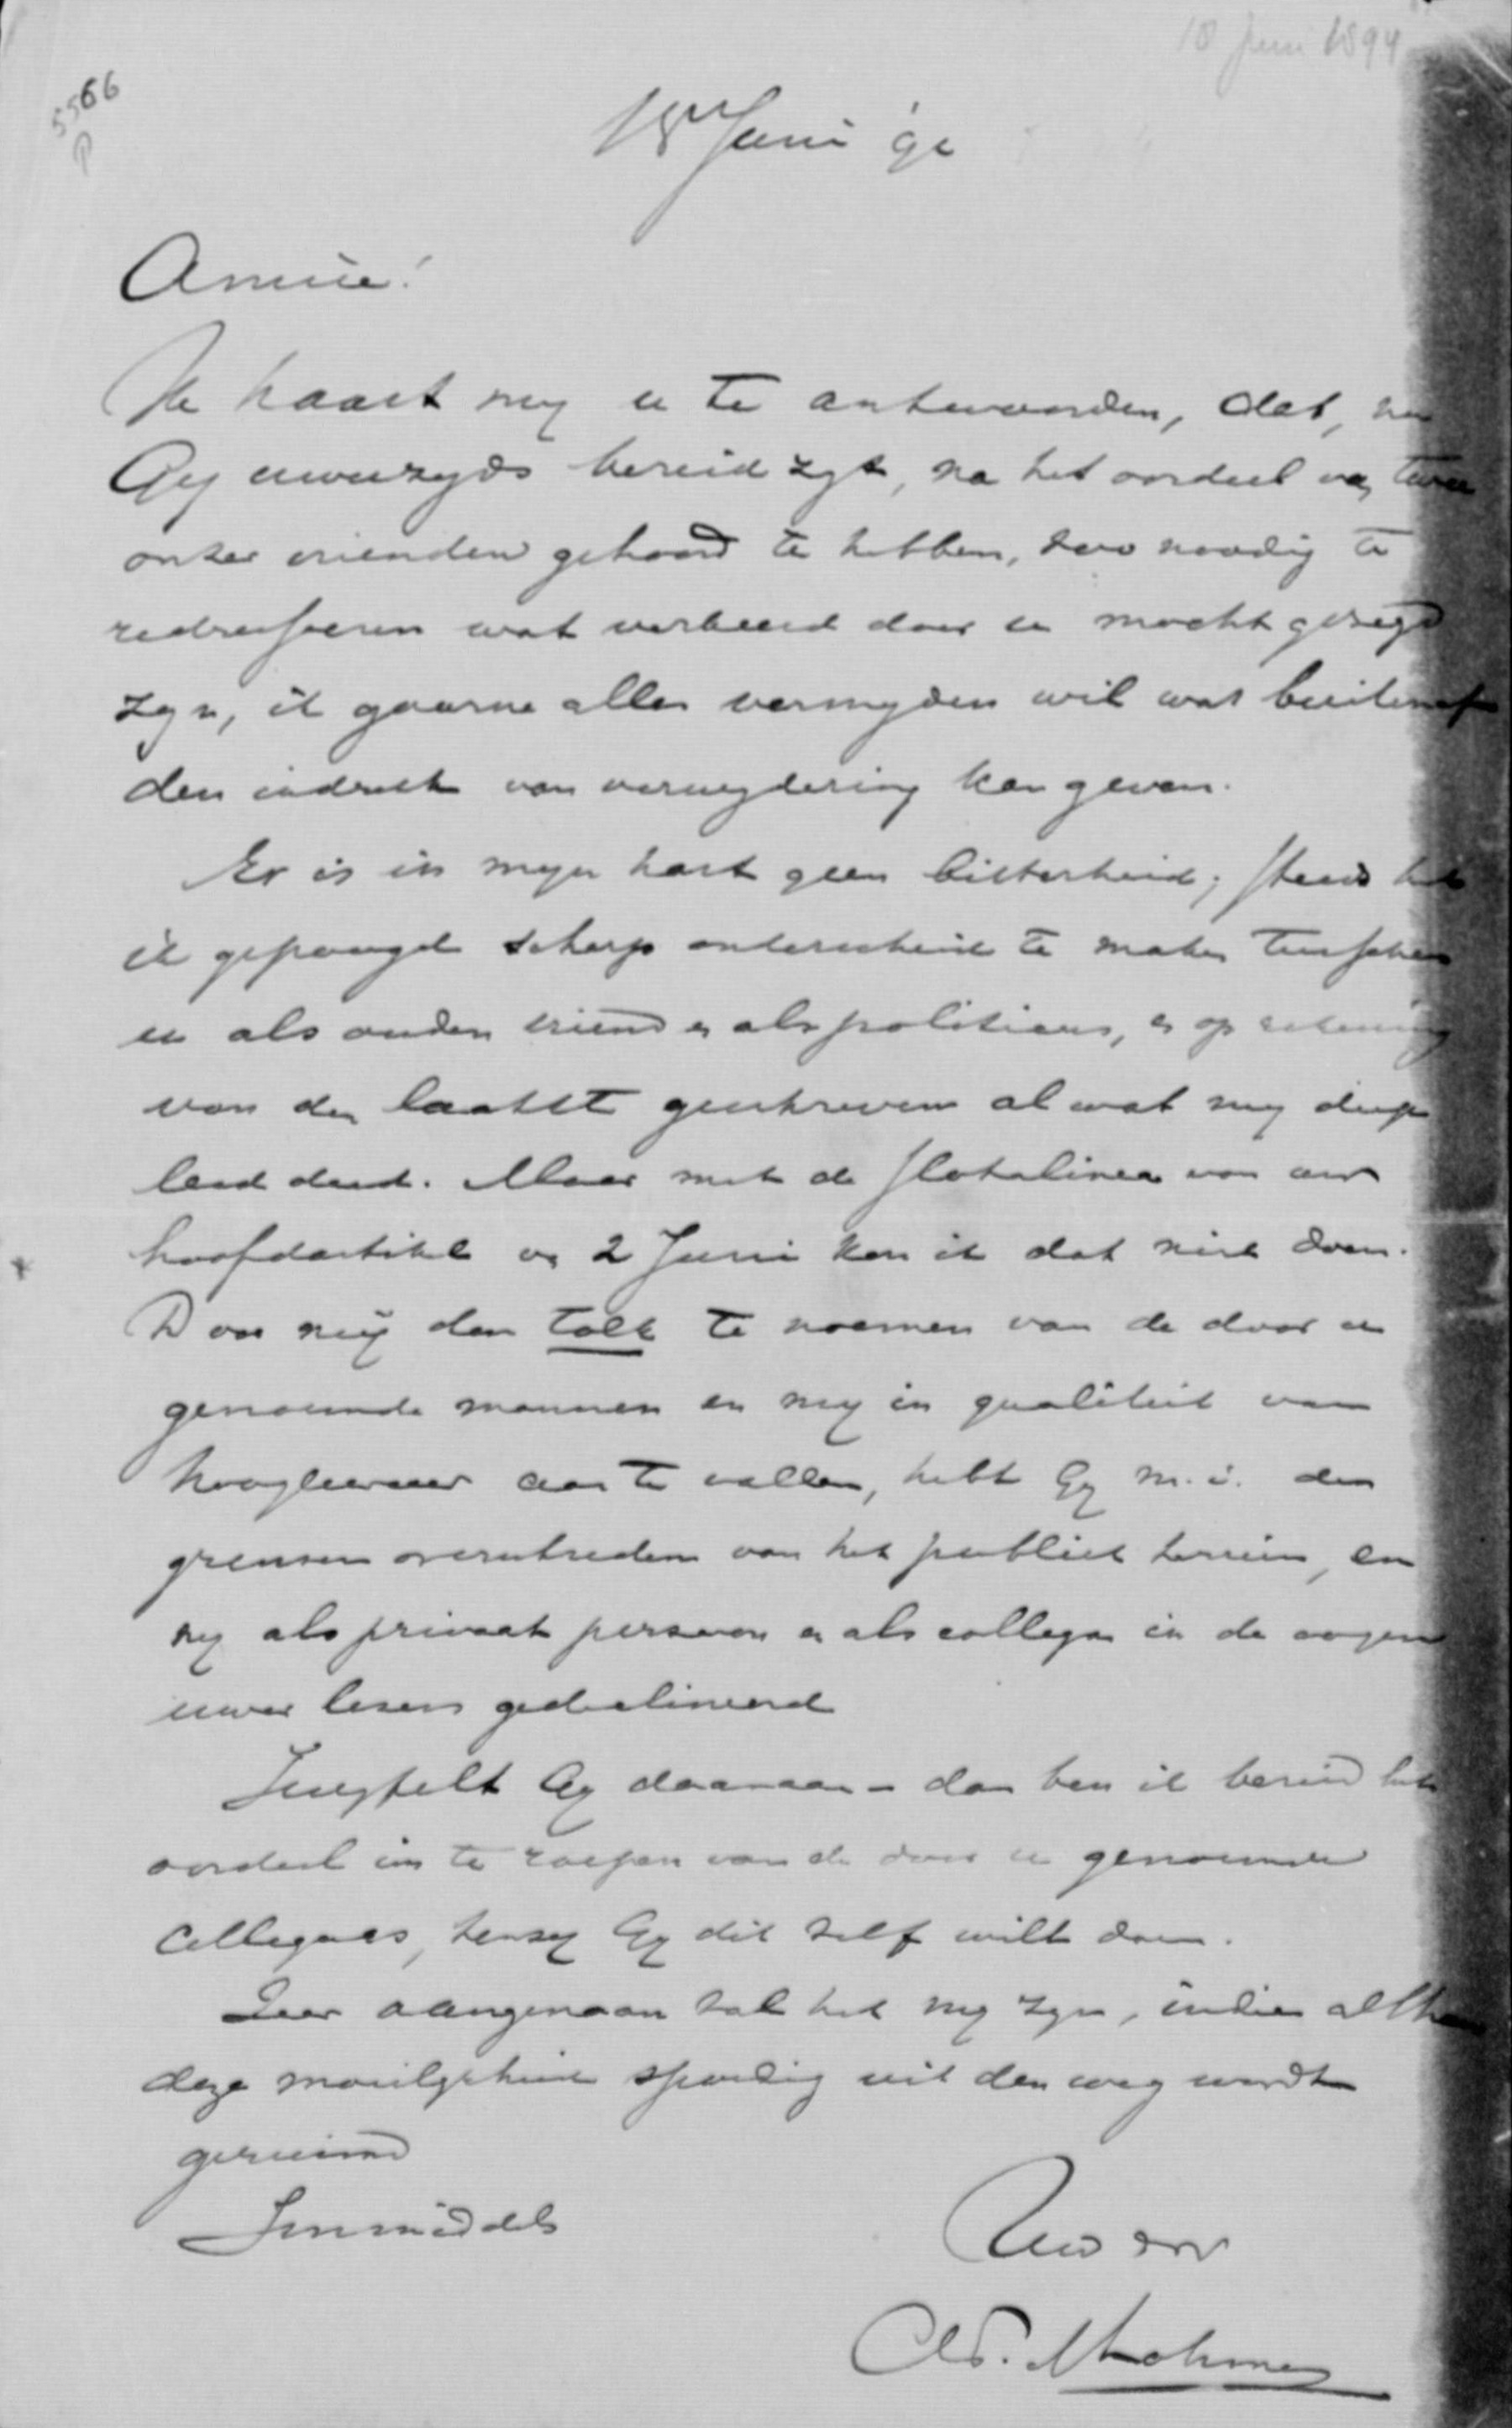 18 Juni 1894
5566
P
18 Juni 94
Amice!
Ik haast mij u te antwoorden, dat, nu
Gij uwerzijds bereid zijt, na het oordeel van twee
onzer vrienden gehoord te hebben, zoo noodig te
redresseeren wat verkeerd door u mocht gezegd
zijn, ik gaarne alles vermijden wil wat buitenaf
den indruk van verwijdering kan geven.
Er is in mijn hart geen bitterheid; steeds heb
ik gepoogd scherp onderscheid te maken tusschen
u als ouden vriend en als politicus, en op rekening
van den laatste geschreven al wat mij diep
leed deed. Maar met de slotalinea van uw
hoofdartikel van 2 Juni kan ik dat niet doen.
Door mij den tolk te noemen van de door u
genoemde mannen en mij in qualiteit van
hoogleeraar aan te vallen, hebt Gij m.i. de
grenzen overschreden van het publiek terrein, en
mij als privaat persoon en als collega in de oogen
uwer lezers gediscl
Twijfelt Gij daaraan – dan ben ik bereid het
oordeel in te roepen van de door u genoemde
Collegaas, tenzij Gij dit zelf wilt doen.
Zeer aangenaam zal het mij zijn, indien althans
deze moeilijkheid spoedig uit den weg wordt
geruimd
Inmiddels
Uw
A. F. Lohman